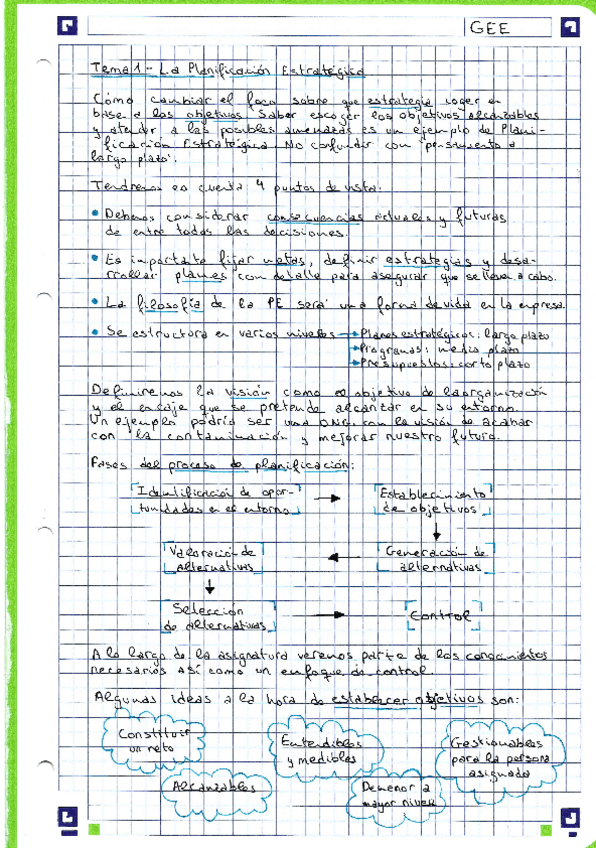 GEE
Tema 1 - La Planificación Estratégica
Cómo cambiar el foco sobre que estrategia coger en
base a los objetivos. Saber escoger los objetivos alcanzables
y atender a las posibles amenazas es un ejemplo de Plani-
ficación Estratégica. No confundir con "pensamiento a
largo plazo".
Tendremos en cuenta 4 puntos de vista:
• Debemos considerar consecuencias actuales y futuras
de entre todas las decisiones.
• Es importante fijar metas, definir estrategias y desa-
rrollar planes con detalle para asegurar que se lleva a cabo.
• La filosofía de la PE será una forma de vida en la empresa.
• Se estructura en varios niveles → Planes estratégicos: largo plazo
→ Programas: medio plazo
→ Presupuestos: corto plazo
Definiremos la visión como el objetivo de la organización
y el encaje que se pretende alcanzar en su entorno.
Un ejemplo podría ser una ONG, con la visión de acabar
con la contaminación y mejorar nuestro futuro.
Fases del proceso de planificación:
Identificación de opor-
tunidades en el entorno
→
Establecimiento
de objetivos
Valoración de
alternativas
←
Generación de
alternativas
Selección
de alternativas
→
Control
A lo largo de la asignatura veremos parte de los conocimientos
necesarios así como un enfoque de control.
Algunas ideas a la hora de establecer objetivos son:
Constituir
un reto
Entendibles
y medibles
Gestionables
para la persona
asignada
Alcanzables
De menor a
mayor nivel